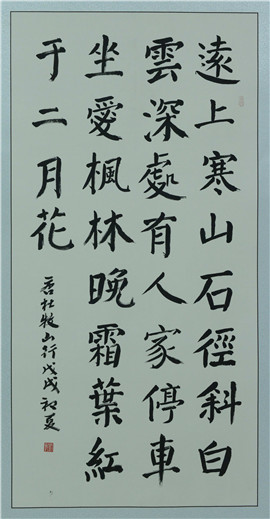 遠上寒山石徑斜白
雲深處有人家停車
坐愛楓林晚霜葉紅
于二月花
唐杜牧山行戊戌初夏